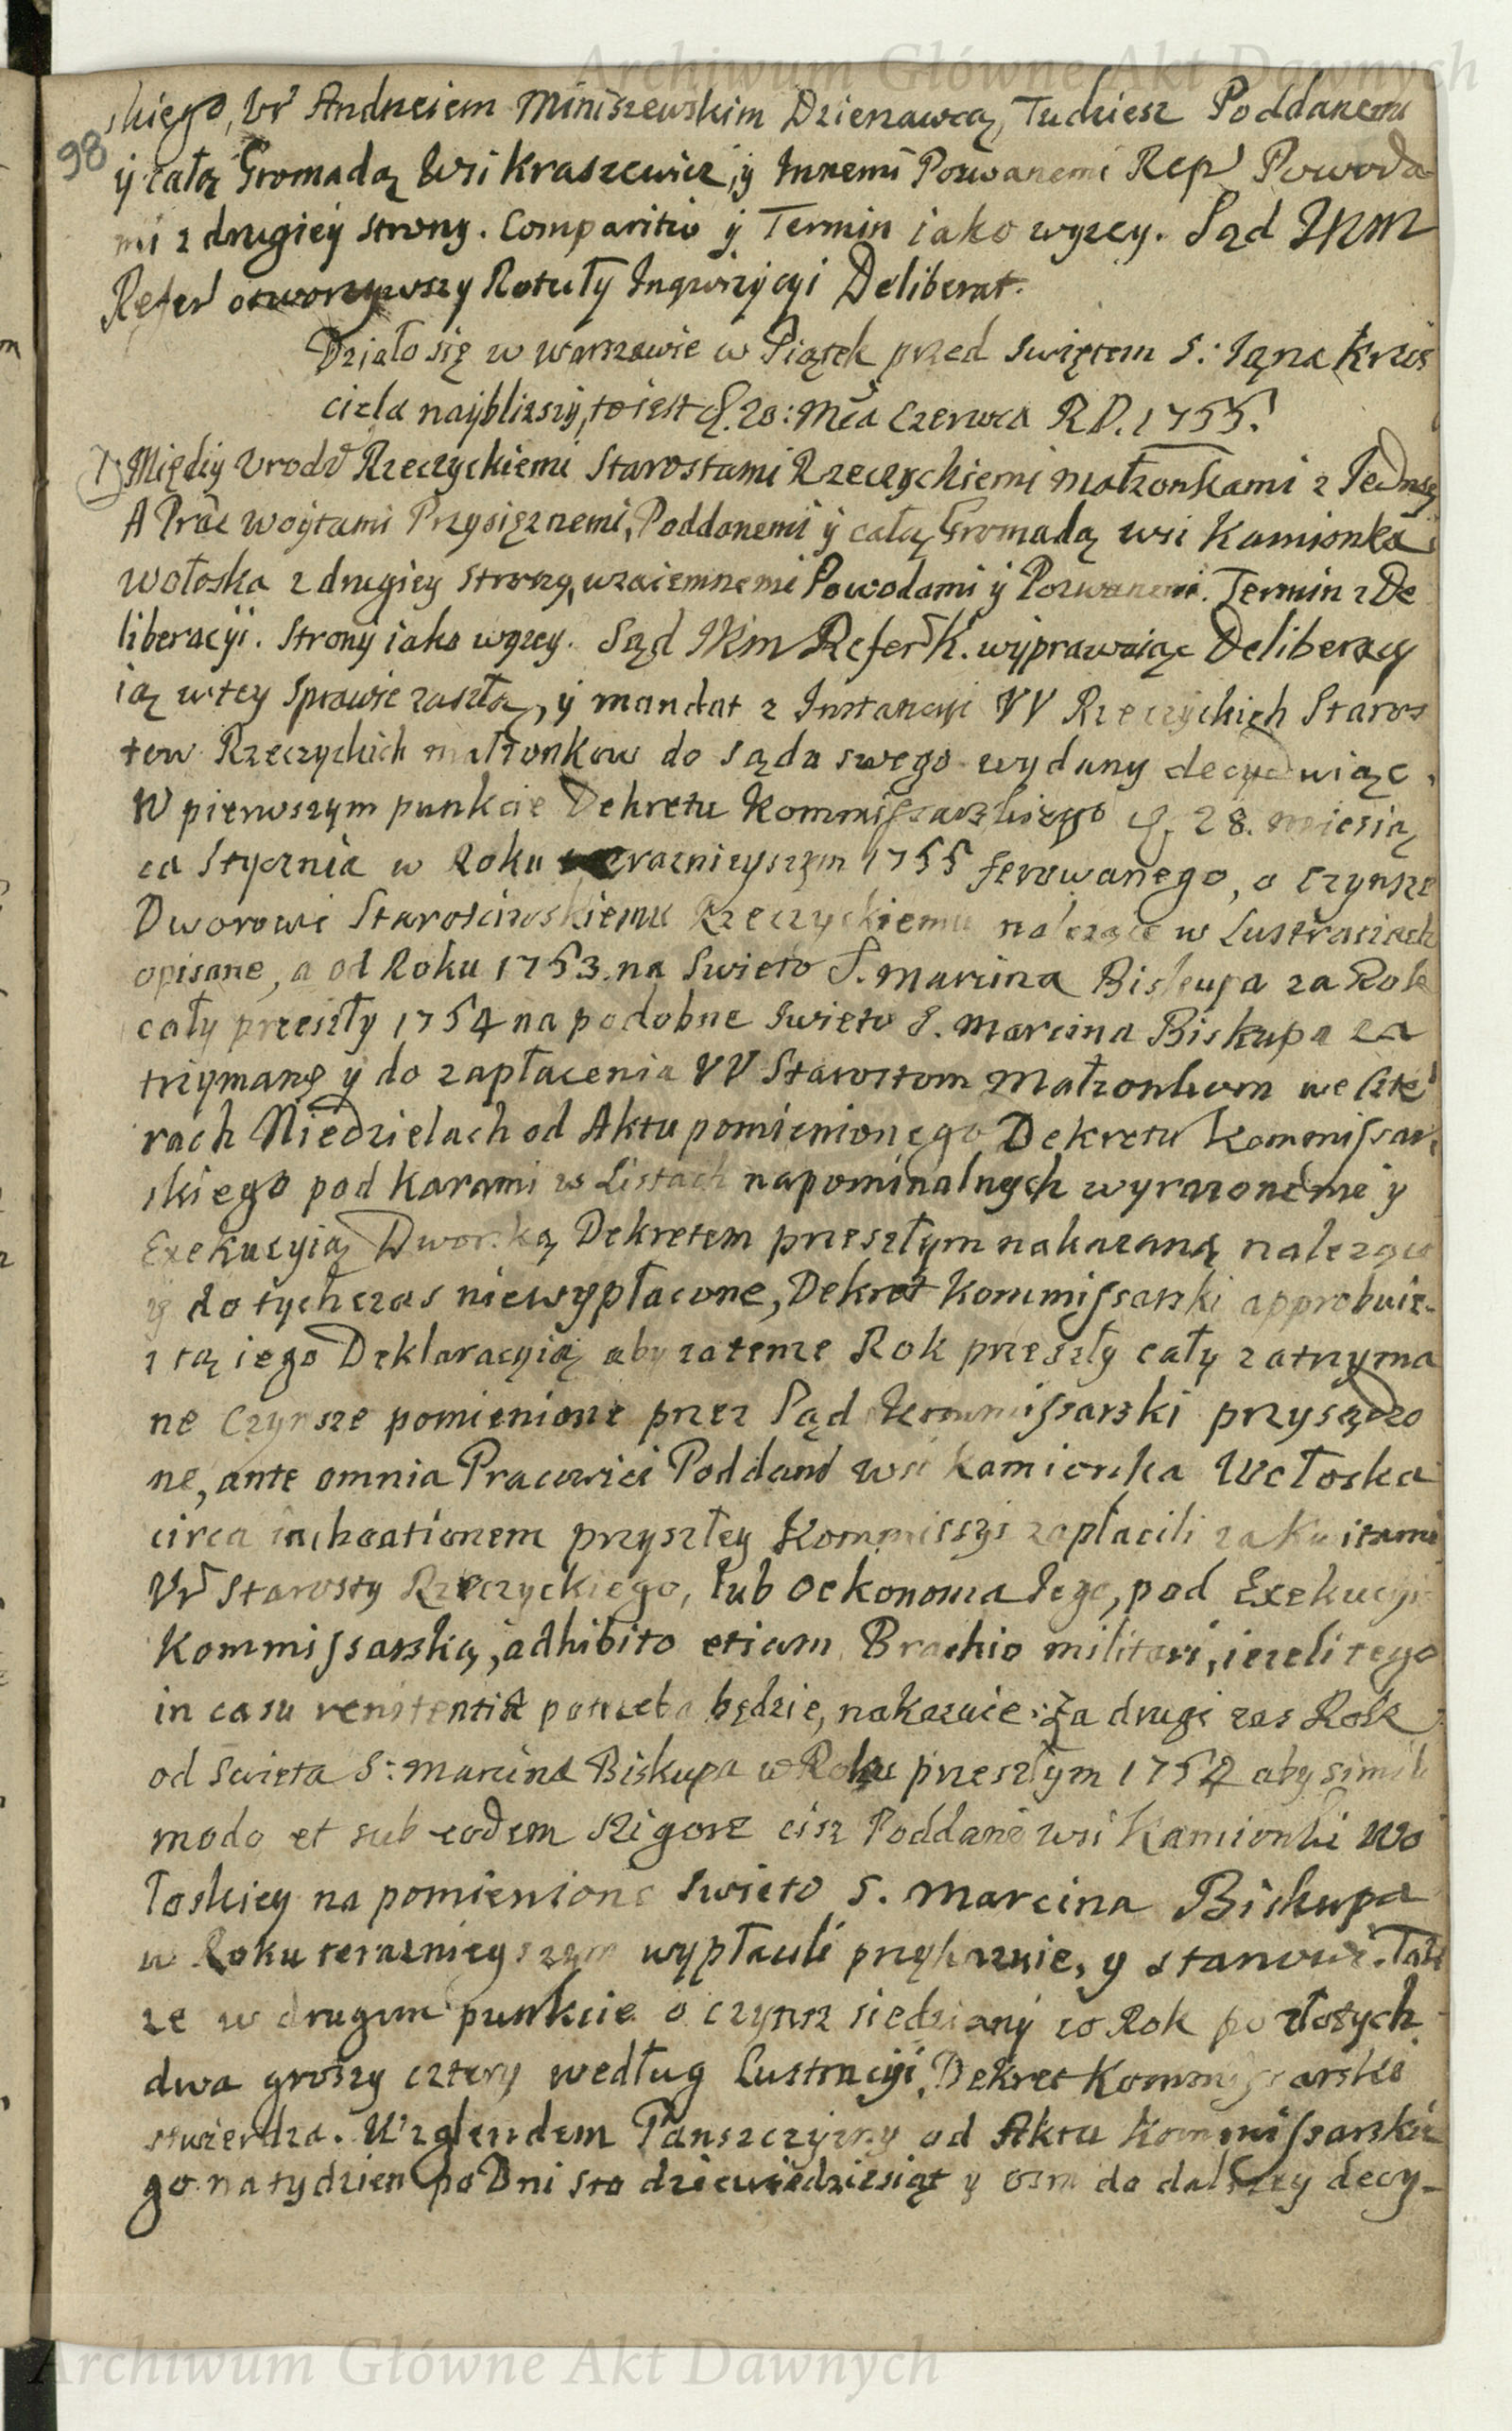 Archiwum Główne Akt Dawnych
98
skiego, Ur Andrzeiem Miniszewskim Dzierzawcą, Tudziesz Poddanemi
y całą Gromadą Wsi Kraszewice, y Innemi Pozwanemi Rep Powoda
mi z drugiey strony. Comparitio y Termin iako wyzey. Sąd JKM
Refer otworzywszy Rotuły Inqwizycyi Deliberat.
Działo się w Warszawie w Piątek przed Swiętem S: Jana Krzci
ciela nayblizszy, to iest d. 20: Mca Czerwca R.D. 1755.
1. Między Urodz Rzeczyckiemi Starostami Rzeczyckiemi Małzonkami z Jedney
A Prac Woytami Przysięznemi, Poddanemi y całą Gromadą wsi Kamionka
Wołoska z drugiey strony, wzaiemnemi Powodami y Pozwanemi. Termin z De
liberacyi. Strony iako wyzey. Sąd JKM Refer K. wyprawuiąc Deliberacy
ią w tey Sprawie zaszłą, y mandat z Instancyi UU Rzeczyckich Staros
tow Rzeczyckich małzonkow do sądu swego wydany decyduiąc.
W pierwszym punkcie Dekretu Kommissarskiego d. 28. miesią
ca Stycznia w Roku teraznieyszym 1755 ferowanego, o Czynsze
Dworowi Starościńskiemu Rzeczyckiemu nalezące w Lustraciach
opisane, a od Roku 1753. na Swieto S. Marcina Biskupa za Rok
cały przeszły 1754 na podobne Swieto S. Marcina Biskupa za
trzymane y do zapłacenia UU Starostom Małzonkom we czte
rach Niedzielach od Aktu pomienionego Dekretu Kommissar
skiego pod karami w Listach napominalnych wyrazonemi y
Exekucyią Dworską Dekretem przeszłym nakazaną nalezące
y do tychczas niewypłacone, Dekret Kommissarski approbuie.
z tą iego Deklaracyią aby za tenze Rok przeszły cały zatrzyma
ne Czynsze pomienione przez Sąd Kommissarski przysądzo
ne, ante omnia Pracowici Poddani wsi Kamionka Wołoska
circa inchoationem przyszłey Kommissyi zapłacili za Kwitami
Ur Starosty Rzeczyckiego, lub Oekonoma Jego, pod Exekucyi
Kommissarską, adhibito etiam Brachio militari, iezeli tego
in casu renitentiæ potrzeba będzie, nakazuie: Za drugi zas Rok
od Swieta S: Marcina Biskupa w Roku przeszłym 1754 aby simili
modo et sub eodem rigore ciz Poddani wsi Kamionki Wo
łoskiey na pomienione Swieto S. Marcina Biskupa
w Roku teraznieyszym wypłacili przykazuie, y stanowi. Tak
ze w drugim punkcie o czynsz siedziany co Rok po złotych
dwa groszy cztery według Lustracyi, Dekret Kommissarski
stwierdza. Wzglendem Panszczyzny od Aktu Kommissarskie
go na tydzien po Dni sto dziewiedziesiąt y osm do dalszey decy-
Archiwum Główne Akt Dawnych